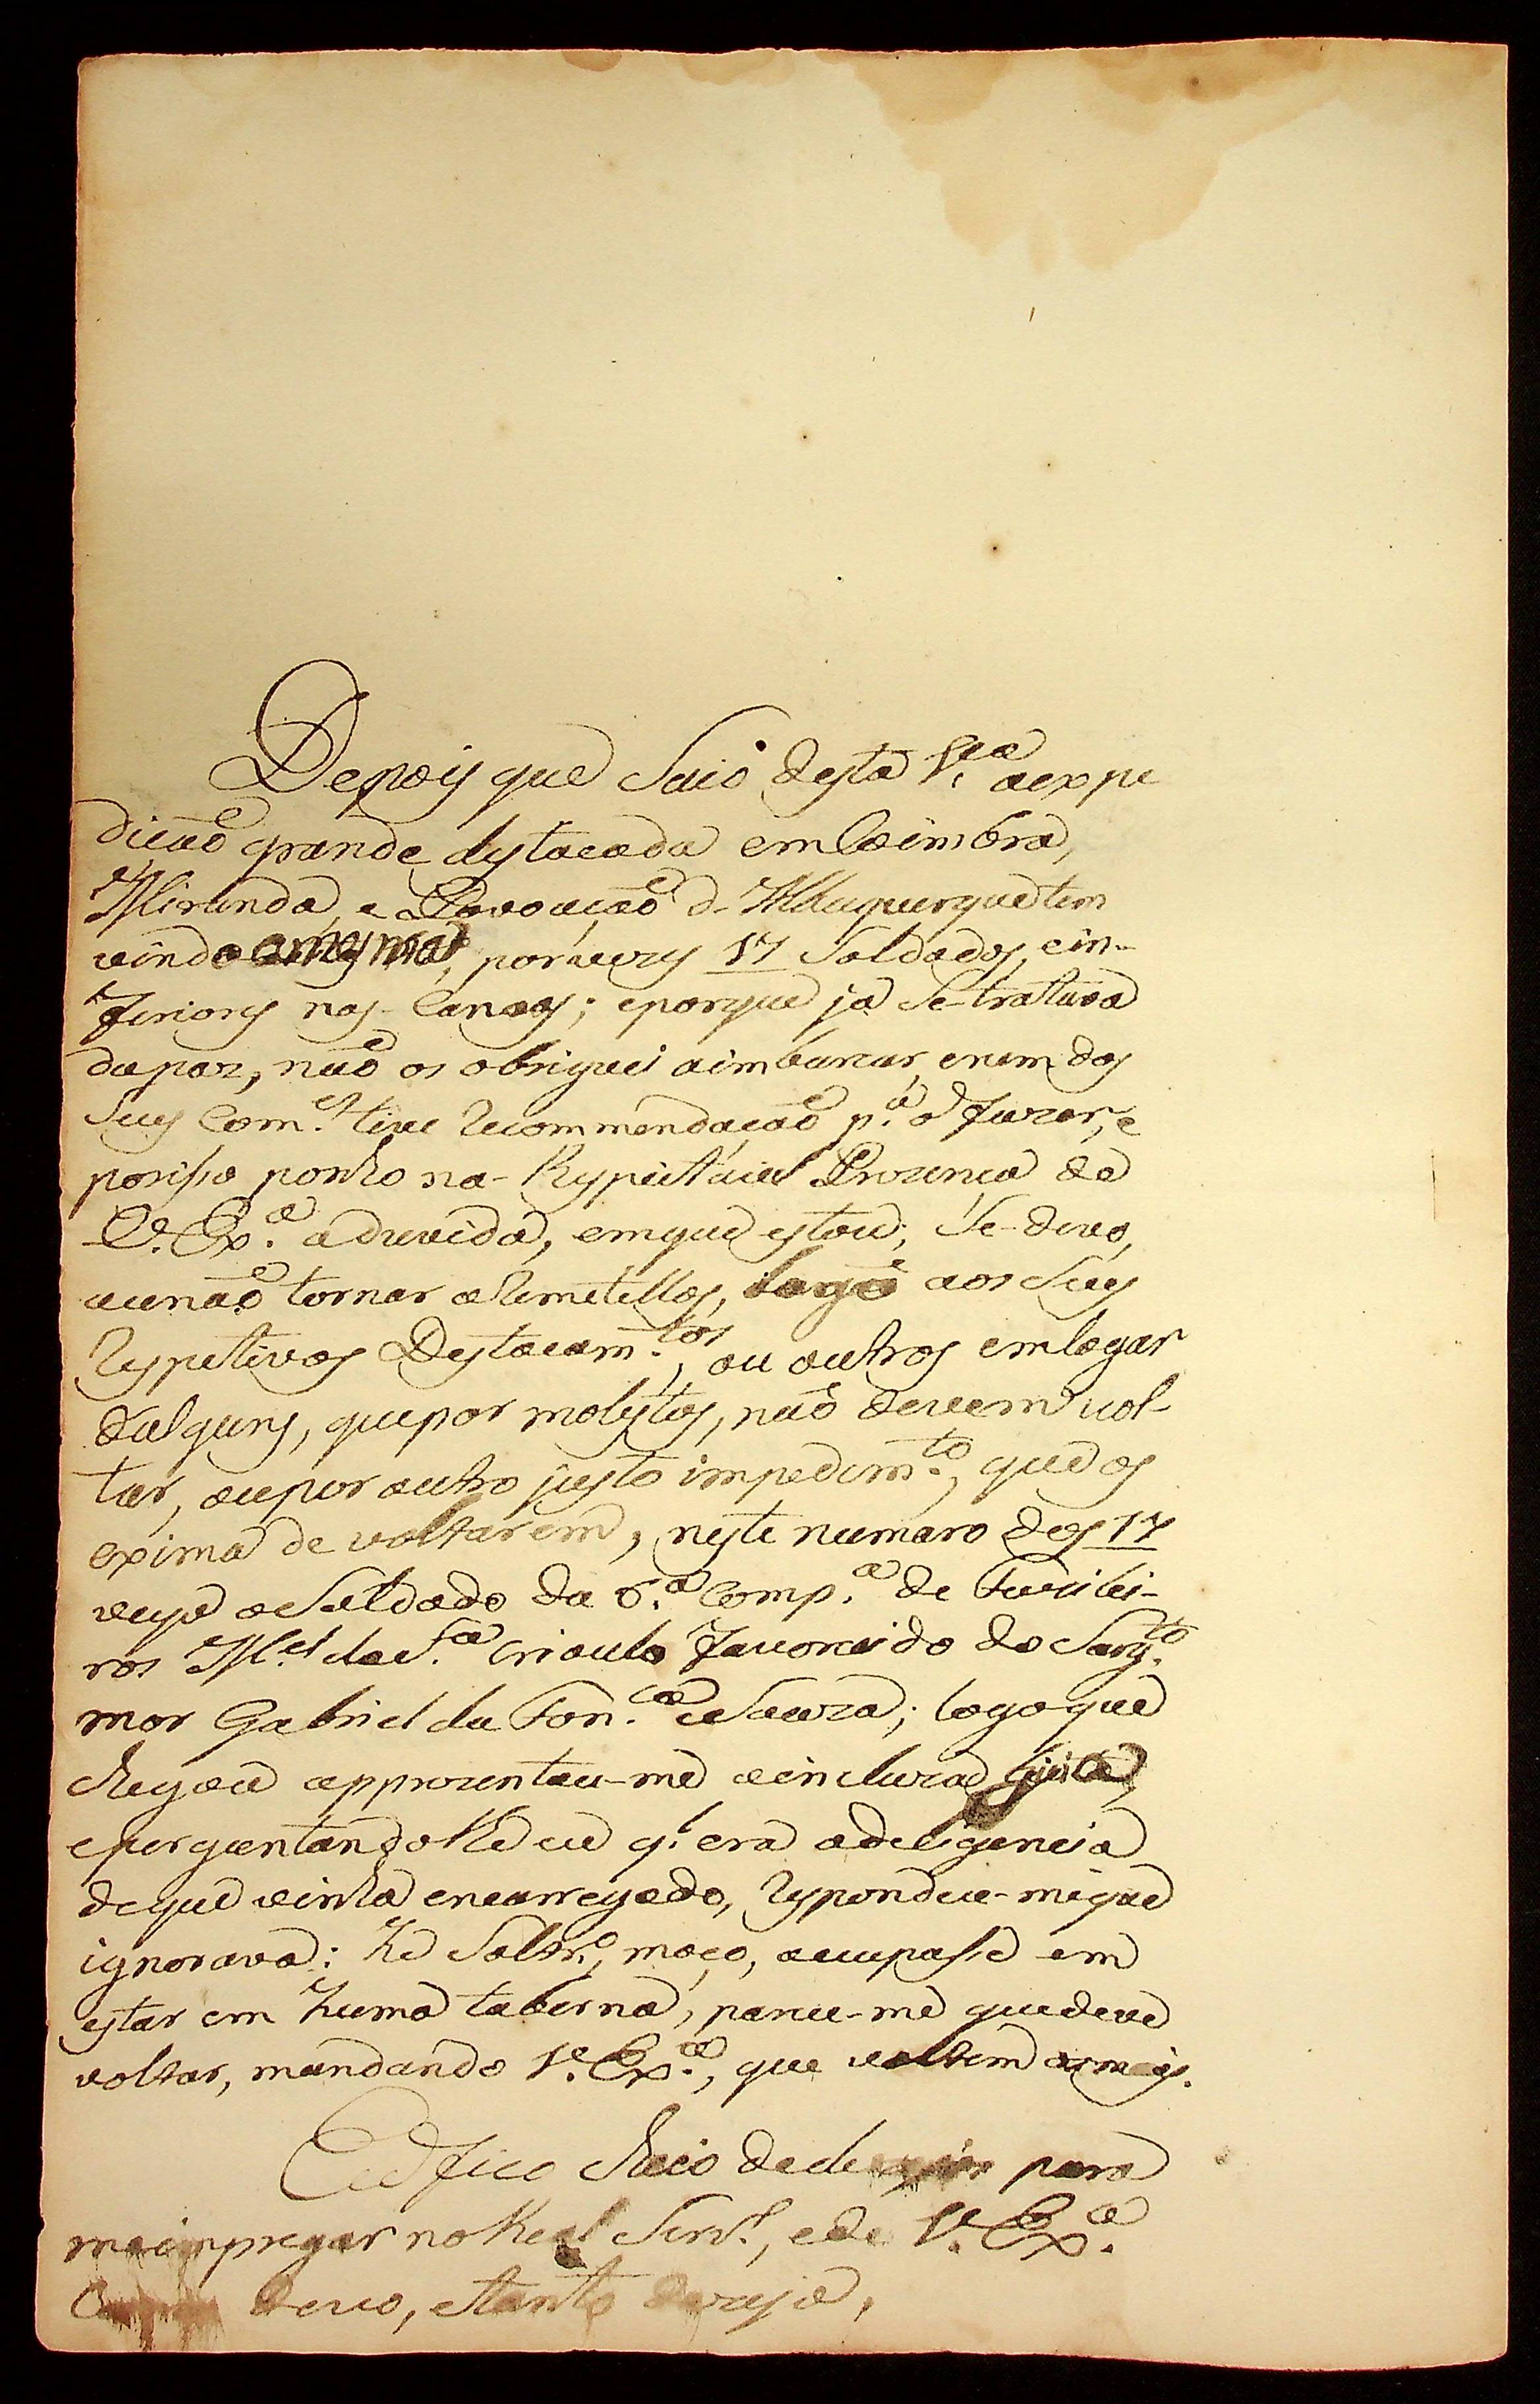 Depois que Saio desta V.ª aexpe
dicaõ grande destacada em Coimbra,
Miranda, e Povoaçaõ d-Albuquerque tem
vindo a mesma, porvezes 17 Soldados, ein-
feriores nas-Canoas; eporque ja Se-tratava
dapaz, naõ os obriguei aimbarcar, enem dos
Seus Com.es tive recommendaçaõ p.ª o fazer, e
porisso ponho na-Respeitavel Prezença de
V. Ex.ª aduvida, emque estou; Se-devo,
ounaõ tornar aremetellos, logo aos Seus
respetivos Destacam.tos, ou outros emlogar
d'alguns, quepor molestos, naõ devem vol-
tar, oupor outro justo impedim.to, que os
exima de voltarem, neste numaro dos 17
veyo oSoldado da 6.ª Comp.ª de Fuzilei-
ros M.el daS.ª Crioulo favorecido do Sarg.to
mor Gabriel da Fon.ca eSouza; logo que
chegou apprezentou-me ainclusa guia,
eperguntandolhe eu q.l era adeligencia
deque vinha encarregado, respondeu-meque
ignorava: he Soltr.º, moço, ocupasse em
estar em huma taberna, parece-me quedeve
voltar, mandando V. Ex.ª, que voltem osmais.
Eu fico cheio dedezejos para
meimpregar noReal Serv.º, ede V. Ex.ª
devo, etanto dezejo,